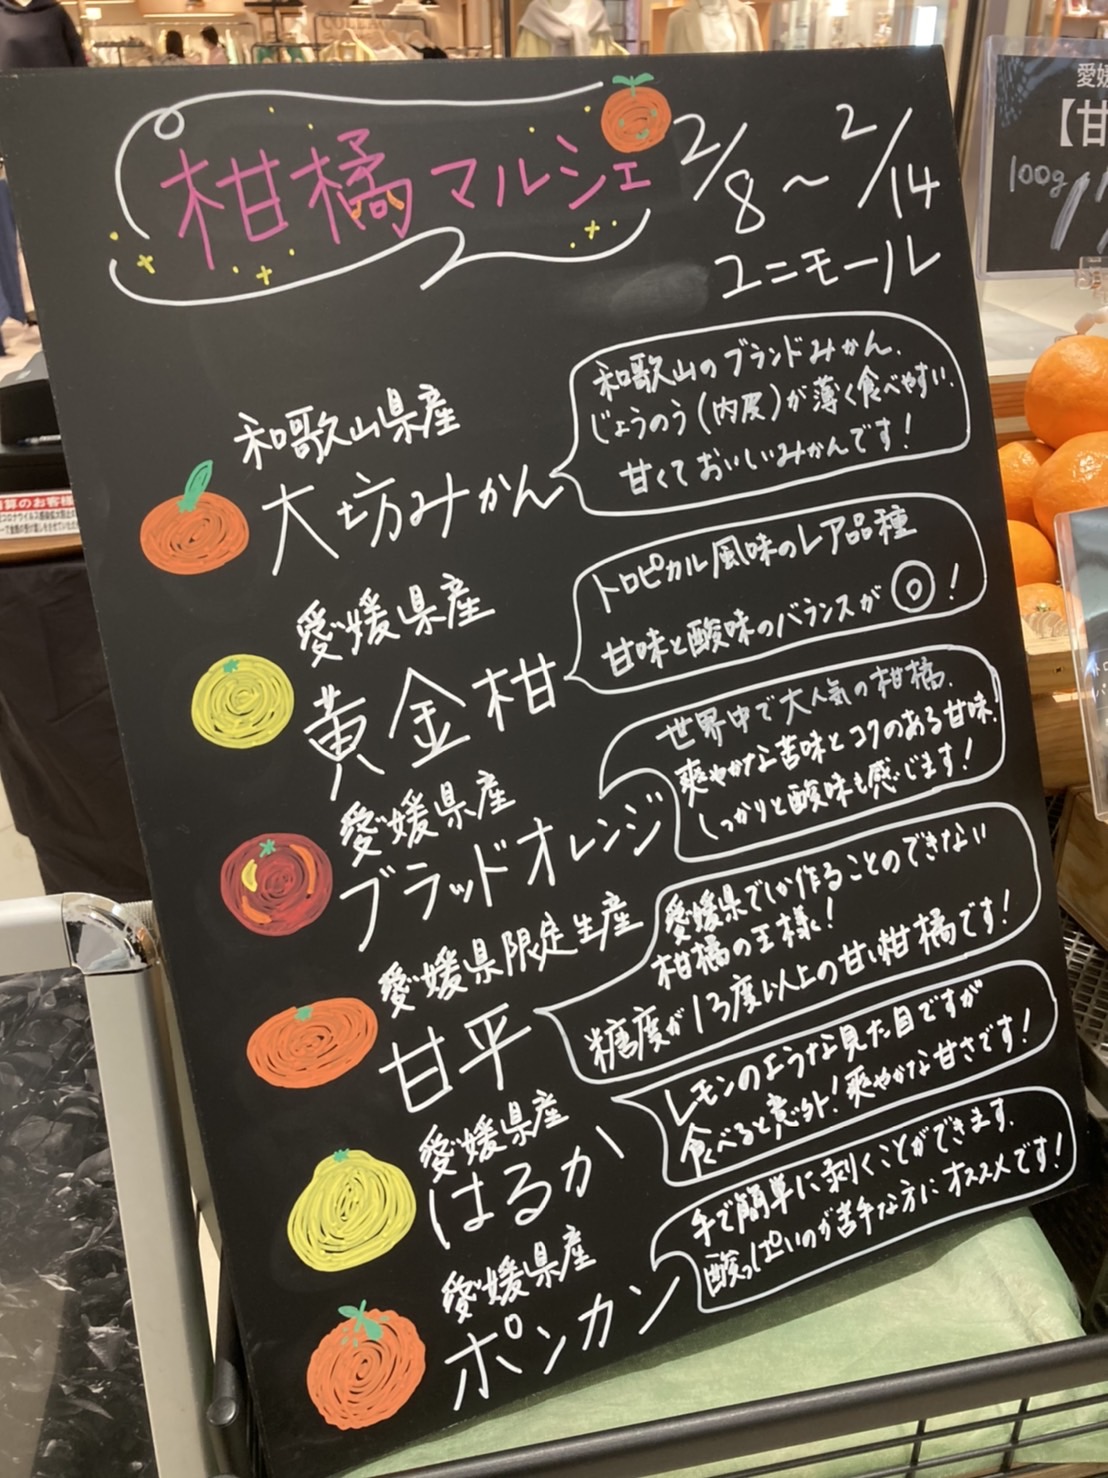 柑橘マルシェ
2/8～2/14
ユニモール
和歌山県産
大坊みかん
和歌山のブランドみかん、
じょうのう(内皮)が薄く食べやすい、
甘くておいしいみかんです!
愛媛県産
黄金柑
トロピカル風味のレア品種
甘味と酸味のバランスが◎!
愛媛県産
ブラッドオレンジ
世界中で大人気の柑橘、
爽やかな苦味とコクのある甘味!
しっかりと酸味も感じます!
愛媛県限定生産
甘平
愛媛県でしか作ることのできない
柑橘の王様!
糖度が13度以上の甘い柑橘です!
愛媛県産
はるか
レモンのような見た目ですが
食べると意外!爽やかな甘さです!
愛媛県産
ポンカン
手で簡単に剥くことができます、
酸っぱいのが苦手な方にオススメです!
愛媛
【甘
100g